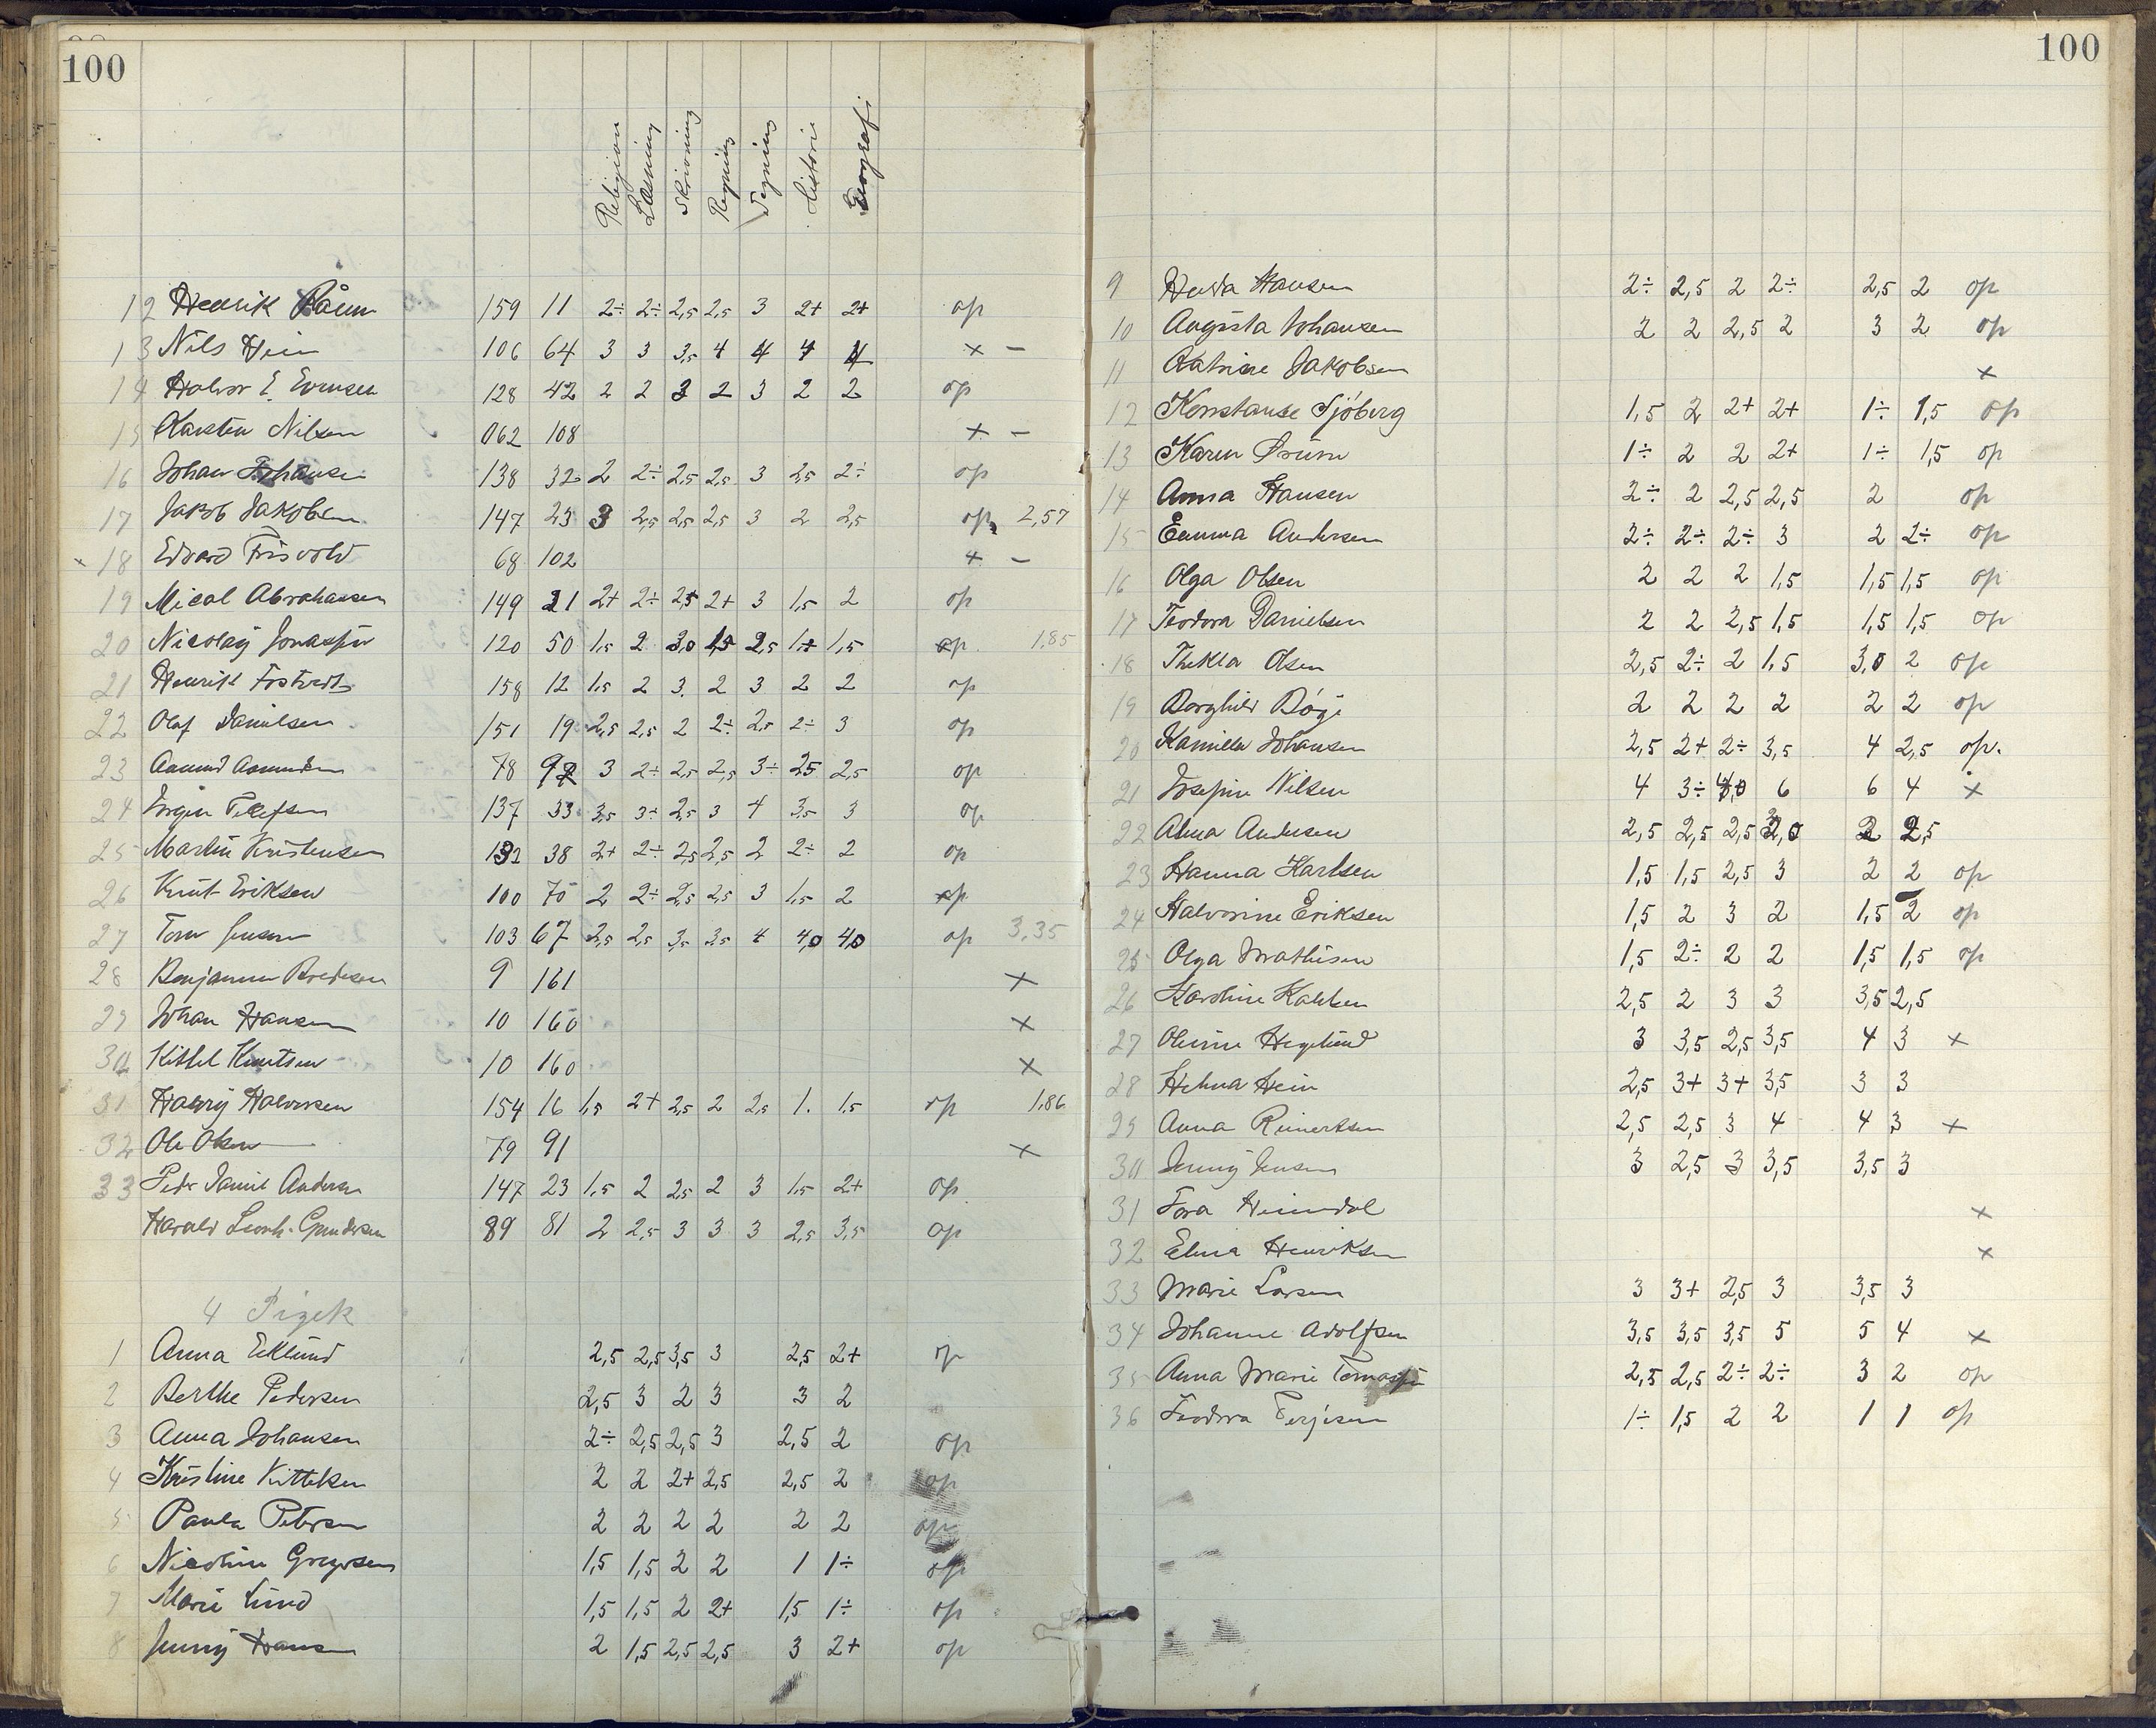 100
Religion Læsning Skrivning Regning Tegning Historie Geografi
12 Henrik 159 11 2÷ 2÷ 2,5 2,5 3 2+ 2+ op
13 Nils Hein 106 64 3 3 3,5 4 4 4 4 × –
14 Halvor E. Evensen 128 42 2 2 3 2 3 2 2 op
15 Karsten Nilsen 062 108 × –
16 Johan Johansen 138 32 2 2÷ 2,5 2,5 3 2,5 2÷ op
17 Jakob Jakobsen 147 23 3 2,5 2,5 2,5 3 2 2,5 op 2,57
× 18 Edvard Frisvold 68 102 × –
19 Mical Abrahamsen 149 21 2+ 2÷ 2,5 2+ 3 1,5 2 op
20 Nicolay Jonassen 120 50 1,5 2 3,0 1,5 2,5 1,+ 1,5 op 1,85
21 Henrik Fostvedt 158 12 1,5 2 3. 2 3 2 2 op
22 Olaf Danielsen 151 19 2,5 2,5 2 2÷ 2,5 2÷ 3 op
23 Aamund Aamundsen 78 92 3 2÷ 2,5 2,5 3÷ 2,5 2,5 op
24 Jørgen Tellefsen 137 33 3,5 3÷ 2,5 3 4 3,5 3 op
25 Martin Kristensen 132 38 2+ 2÷ 2,5 2,5 2 2÷ 2 op
26 Knut Eriksen 100 70 2 2÷ 2,5 2,5 3 1,5 2 op
27 Tom Jensen 103 67 2,5 2,5 3,5 3,5 4 4,0 4,0 op 3,35
28 Benjamin Bredesen 9 161 ×
29 Johan Hansen 10 160 ×
30 Kittel Knutsen 10 160 ×
31 Harry Halvorsen 154 16 1,5 2+ 2,5 2 2,5 1. 1,5 op 1,86
32 Ole Olsen 79 91 ×
33 Peder Daniel Andersen 147 23 1,5 2 2,5 2 3 1,5 2+ op
Harald Leonh. Gundersen 89 81 2 2,5 3 3 3 2,5 3,5 op
4 Pigek
1 Anna Eklund 2,5 2,5 3,5 3 2,5 2+ op
2 Berthe Pedersen 2,5 3 2 3 3 2
3 Anna Johansen 2÷ 2,5 2,5 3 2,5 2 op
4 Kristine Kittelsen 2 2 2+ 2,5 2,5 2 op
5 Paula Petersen 2 2 2 2 2 2 op
6 Nicoline Gregersen 1,5 1,5 2 2 1 1÷ op
7 Marie Lund 1,5 1,5 2 2+ 1,5 1÷ op
8 Jenny Hansen 2 1,5 2,5 2,5 3 2+ op
100
9 Hulda Hansen 2÷ 2,5 2 2÷ 2,5 2 op
10 Augusta Johansen 2 2 2,5 2 3 2 op
11 Katrine Jakobsen ×
12 Konstanse Sjöberg 1,5 2 2+ 2+ 1÷ 1,5 op
13 Karen Ørum 1÷ 2 2 2+ 1÷ 1,5 op
14 Anna Hansen 2÷ 2 2,5 2,5 2 op
15 Emma Andersen 2÷ 2÷ 2÷ 3 2 2÷ op
16 Olga Olsen 2 2 2 1,5 1,5 1,5 op
17 Teodora Danielsen 2 2 2,5 1,5 1,5 1,5 op
18 Thekla Olsen 2,5 2÷ 2 1,5 3,0 2 op
19 Borghild Bøge 2 2 2 2 2 2 op
20 Kamilla Johansen 2,5 2+ 2÷ 3,5 4 2,5 op.
21 Josefine Nilsen 4 3÷ 4,0 6 6 4 ×
22 Alma Andersen 2,5 2,5 2,5 2,0 2 2,5
23 Hanna Karlsen 1,5 1,5 2,5 3 2 2 op
24 Halvorine Eriksen 1,5 2 3 2 1,5 2 op
25 Olga Mathisen 1,5 2÷ 2 2 1,5 1,5 op
26 Karoline Karlsen 2,5 2 3 3 3,5 2,5
27 Olevine Heglund 3 3,5 2,5 3,5 4 3 ×
28 Helma Hein 2,5 3+ 3+ 3,5 3 3
29 Anna Reinertsen 2,5 2,5 3 4 4 3 ×
30 Jenny Jensen 3 2,5 3 3,5 3,5 3
31 Tora Heimdal ×
32 Elma Henriksen ×
33 Marie Larsen 3 3+ 2,5 3 3,5 3
34 Johanne Adolfsen 3,5 3,5 3,5 5 5 4 ×
35 Anna Marie Tomassen 2,5 2,5 2÷ 2÷ 3 2 op
36 Teodora Terjesen 1÷ 1,5 2 2 1 1 op